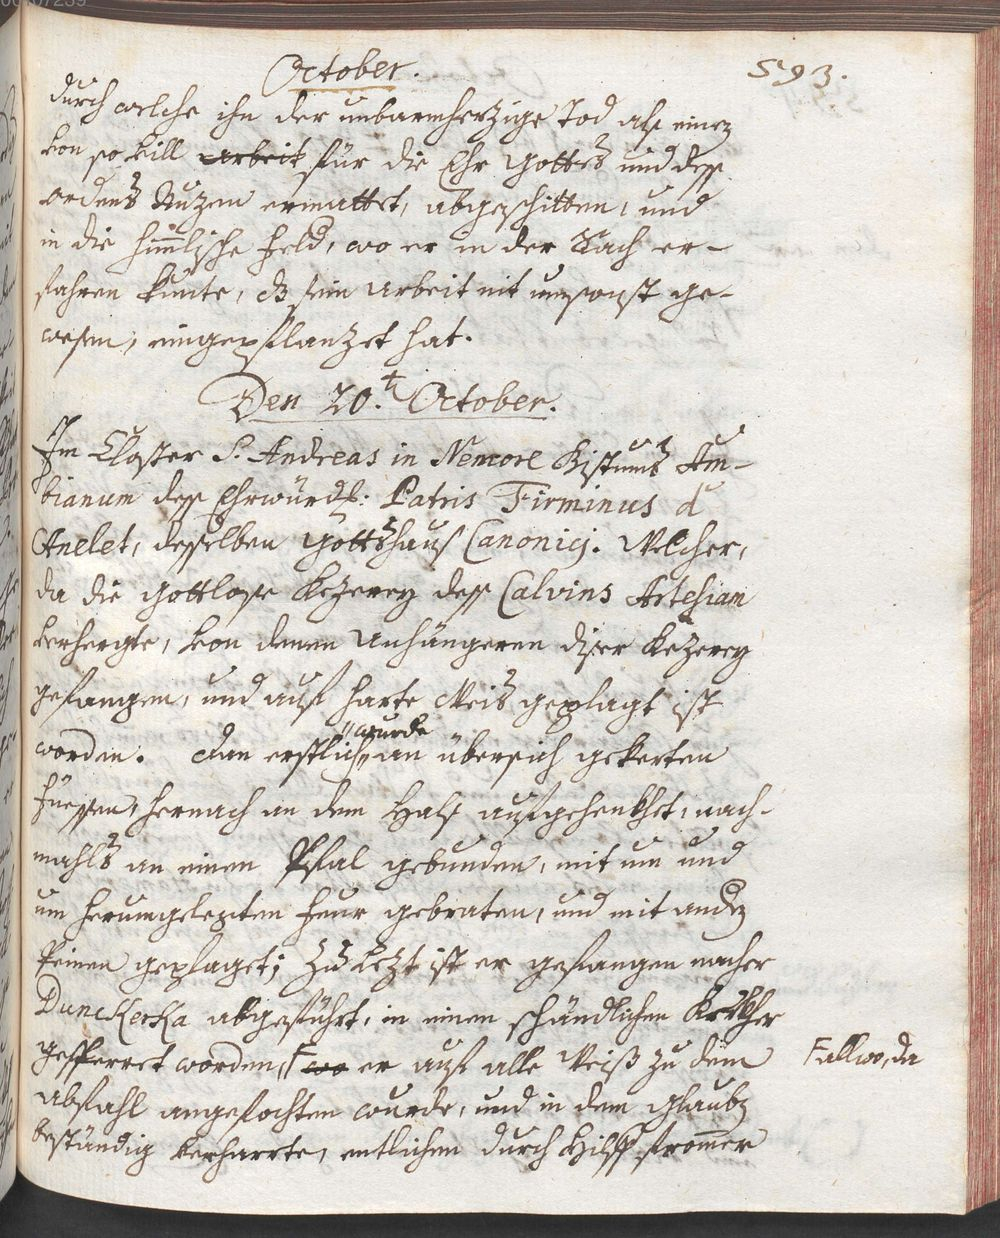 October.
593.
durch welche ihn der unbarmherzige Tod alß einen
von so vill arbeit für die Ehr Gottes und deß
ordens Nuzen ermattet, abgeschitten, und
in die himlische Feld, wo er in der Sach er-
fahren kunte, dz sein arbeit nit umsonst ge-
wesen, eingepflanzet hat.
Den 20.t October.
Im Closter S. Andreas in Nemore Bistums Am-
bianum deß Ehrwürd: Patris Firminus d
Anelet, desselben Gottshauß Canonicj. Welcher,
da die gottlose Kezerey deß Calvins Artesiam
verhergte, von denen Anhängeren diser Kezerey
gefangen, und auf harte Weis geplagt ist
worden. dan erstlich wurde an übersich gekerten
Füessen, hernach an dem Halß aufgehenkhet, nach-
mahls an einen Pfal gebunden, mit um und
um herumgelegten Feur gebraten, und mit andern
Peinen geplaget; zu letzt ist er gefangen nacher
DuncKerKa abgeführt, in einen schändlichen Kerkher
gesperret worden, wo er auf alle Weiß zu dem
Fallwo, da
abfahl angefochten wurde, und in dem Glauben
beständig verharrte, entlichen durch Hilff fromer